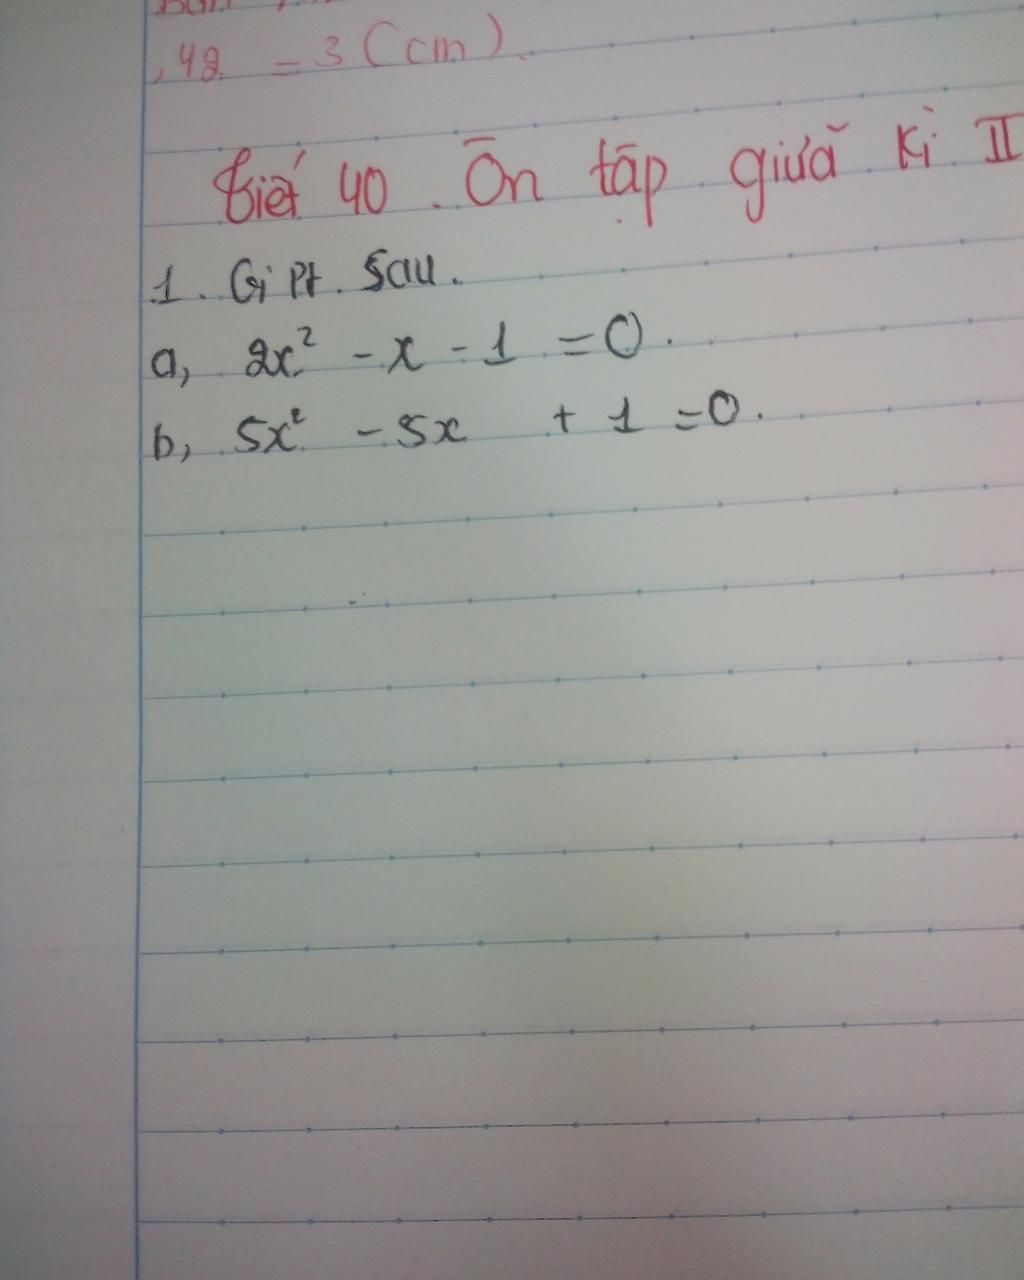 ,48 = 3 (cm).
Tiết 40. Ôn tập giữa kì II
1. Gi Pt. Sau.
a, 2x² - x - 1 = 0.
b, 5x² - 5x + 1 = 0.